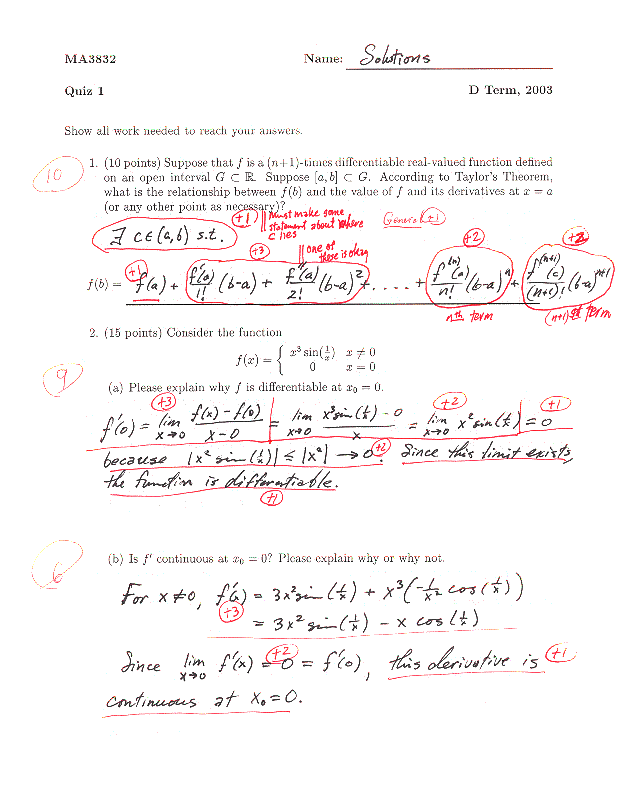 MA3832 Name: Solutions
Quiz 1 D Term, 2003
Show all work needed to reach your answers.
10
1. (10 points) Suppose that f is a (n+1)-times differentiable real-valued function defined
on an open interval G ⊂ ℝ. Suppose [a, b] ⊂ G. According to Taylor's Theorem,
what is the relationship between f(b) and the value of f and its derivatives at x = a
(or any other point as necessary)?
+1 Must make some
statement about where
c lies
General +1
∃ c∈(a,b) s.t.
+3 one of these is okay
+2 +2
f(b) = +1 f(a) + f'(a)/1! (b-a) + f''(a)/2! (b-a)² + . . . . + f^(n)(a)/n! (b-a)^n + f^(n+1)(c)/(n+1)! (b-a)^(n+1)
nth term (n+1)st term
2. (15 points) Consider the function
f(x) = { x³ sin(1/x) x ≠ 0
0 x = 0
9
(a) Please explain why f is differentiable at x₀ = 0.
+3 +2 +1
f'(0) = lim x→0 f(x) - f(0) / x - 0 = lim x→0 x³ sin(1/x) - 0 / x = lim x→0 x² sin(1/x) = 0
because |x² sin(1/x)| ≤ |x²| → 0. +2 Since this limit exists,
the function is differentiable.
+1
6
(b) Is f' continuous at x₀ = 0? Please explain why or why not.
For x≠0, f'(x) = 3x² sin(1/x) + x³(-1/x² cos(1/x))
+3 = 3x² sin(1/x) - x cos(1/x)
Since lim x→0 f'(x) = 0 = f'(0), this derivative is +1
+2
continuous at x₀=0.